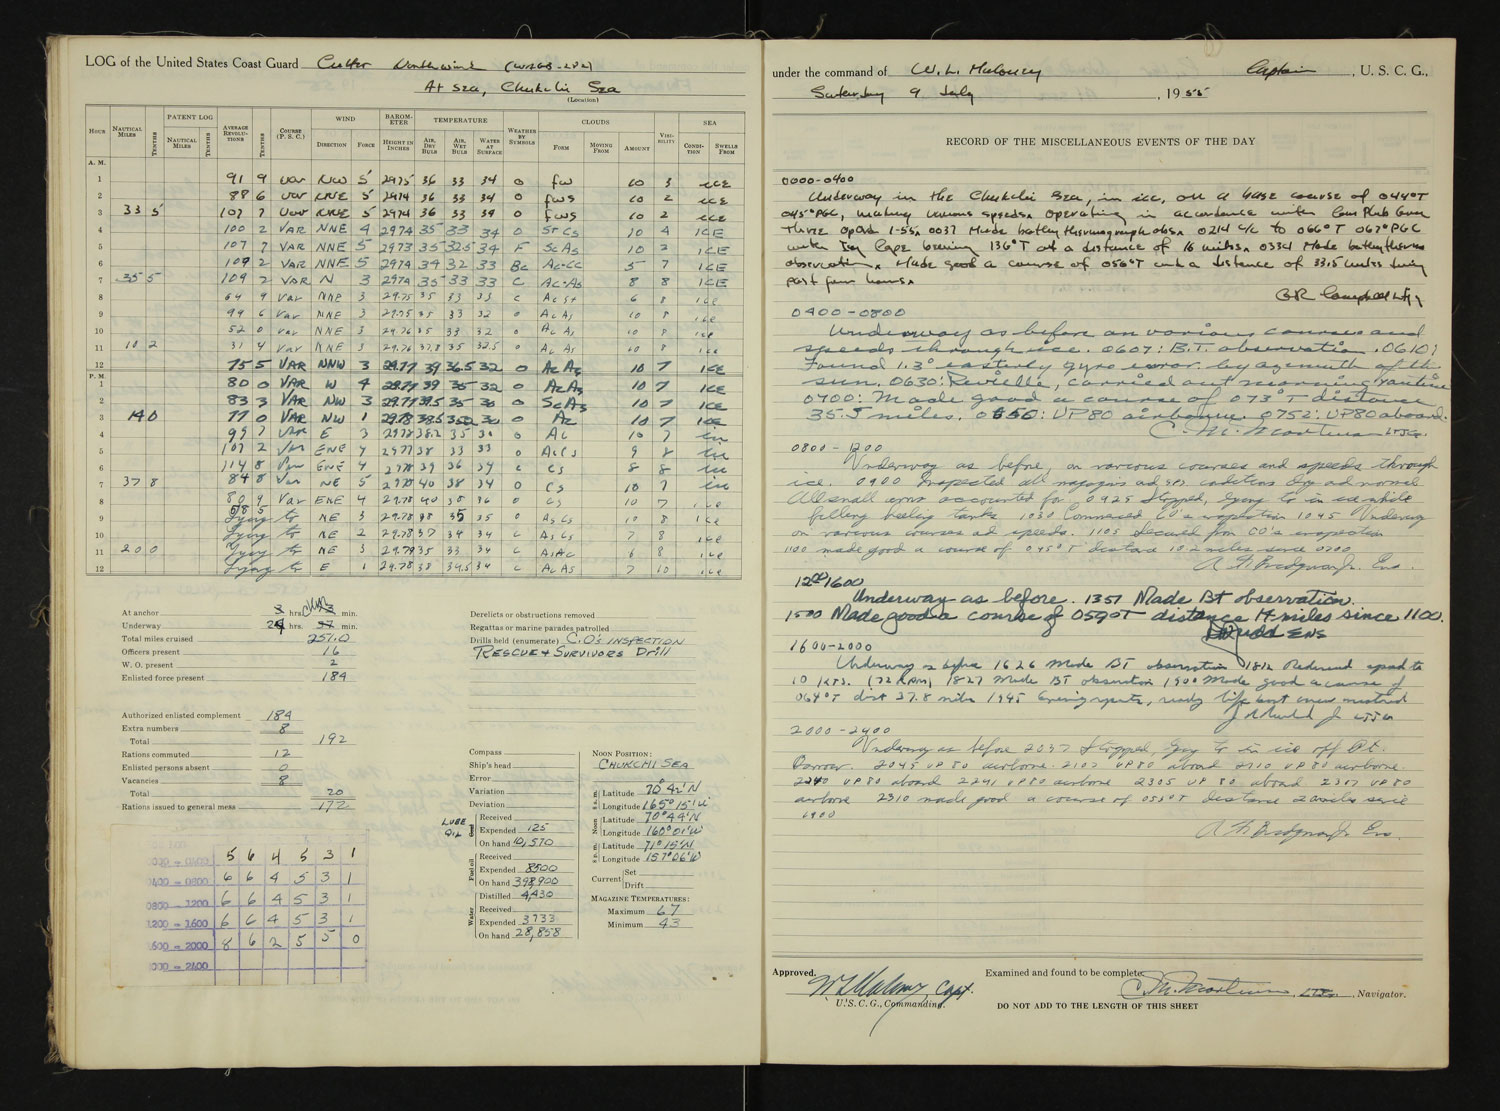 LOG of the United States Coast Guard Cutter Northwind (WAGB-282)
At Sea, Chukchi Sea
(Location)
HOUR NAUTICAL MILES TENTHS PATENT LOG NAUTICAL MILES TENTHS AVERAGE REVOLUTIONS TENTHS COURSE (P. S. C.) WIND DIRECTION FORCE BAROMETER HEIGHT IN INCHES TEMPERATURE AIR, DRY BULB AIR, WET BULB WATER AT SURFACE WEATHER BY SYMBOLS CLOUDS FORM MOVING FROM AMOUNT VISIBILITY SEA CONDITION SWELLS FROM
A. M.
1 91 9 var NW 5 2975 36 33 34 O 10 3 ICE
2 88 6 var NNE 5 2974 36 33 34 O 10 2 ICE
3 33 5 107 7 var NNE 5 2974 36 33 34 O 10 2 ICE
4 100 2 VAR NNE 4 2974 35 33 34 O St Cs 10 4 ICE
5 107 7 VAR NNE 5 2973 35 32.5 34 F Sc As 10 2 ICE
6 109 2 VAR NNE 5 2974 34 32 33 Bc Ac-Cc 5 7 ICE
7 35 5 109 2 VAR N 3 2974 35 33 33 C Ac-As 8 8 ICE
8 64 9 Var NNE 3 29.75 35 33 33 C Ac St 6 8 ice
9 99 6 Var NNE 3 29.75 35 33 32 O Ac As 10 8 ice
10 52 0 var NNE 3 29.76 35 33 32 O Ac As 10 8 ice
11 10 2 31 4 var NNE 3 29.76 37.8 35 32.5 O Ac As 10 8 ice
12 75 5 VAR NNW 3 29.77 39 36.5 32 O Ac As 10 7 ICE
P. M.
1 80 0 VAR W 4 29.77 39 35 32 O Ac As 10 7 ICE
2 83 3 VAR NW 3 29.77 39.5 35 30 O Sc As 10 7 ICE
3 14 0 77 0 VAR NW 1 29.78 38.5 30 O Ac 10 7 ICE
4 99 7 Var E 3 2978 38.2 35 O Ac 10 7
5 107 2 Var ENE 4 2977 38 33 33 O 9 8
6 114 8 Var ENE 4 2778 39 36 34 C Cs 8 8
7 37 8 84 8 Var NE 5 2978 40 38 34 O Cs 10 7
8 80 9 Var ENE 4 29.78 40 38 36 O Cs 10 7 ice
9 58 5 Lying to NE 3 29.78 38 35 35 O As Cs 10 8 ice
10 Lying to NE 2 29.78 37 34 34 C As Cs 7 8 ice
11 20 0 Lying to NE 3 29.79 35 33 34 C AsAc 6 8 ice
12 Lying to E 1 29.78 38 34.5 34 C Ac As 7 10 ice
At anchor hrs. min.
Underway 24 hrs. min.
Total miles cruised 251.0
Officers present 16
W. O. present 2
Enlisted force present 184
Derelicts or obstructions removed
Regattas or marine parades patrolled
Drills held (enumerate) C.O's INSPECTION
RESCUE & SURVIVORS Drill
Authorized enlisted complement 184
Extra numbers 8
Total 192
Rations commuted 12
Enlisted persons absent 0
Vacancies 8
Total 20
Rations issued to general mess 172
Compass
Ship's head
Error
Variation
Deviation
LUBE OIL
Received
Expended 125
On hand 10,570
Fuel oil
Received
Expended 8500
On hand 398,900
Water
Distilled 4,430
Received
Expended 3733
On hand 28,858
NOON POSITION:
CHUKCHI SEA
8 a. m. Latitude 70° 42' N
Longitude 165° 15' W
Noon Latitude 70° 44' N
Longitude 160° 01' W
8 p. m. Latitude 71° 15' N
Longitude 157° 06' W
Current Set
Drift
MAGAZINE TEMPERATURES:
Maximum 67
Minimum 43
0000 - 0400 5 6 4 5 3 1
0400 - 0800 6 6 4 5 3 1
0800 - 1200 6 6 4 5 3 1
1200 - 1600 6 6 4 5 3 1
1600 - 2000 8 6 2 5 5 0
2000 - 2400
under the command of W. L. Maloney Captain, U. S. C. G.,
Saturday 9 July, 1955
RECORD OF THE MISCELLANEOUS EVENTS OF THE DAY
0000-0400
Underway in the Chukchi Sea, in ice, on a base course of 044°T
045°PGC, making various speeds. Operating in accordance with
Three OpOrd 1-55. 0037 Made bathythermograph obs. 0214 C/C to 066°T 067°PGC
with Icy Cape bearing 136°T at a distance of 16 miles. 0334 Made bathythermo
observation. Made good a course of 056°T and a distance of 33.5 miles during
past four hours.
BR Campbell Ltjg
0400-0800
Underway as before on various courses and
speeds through ice. 0607: B.T. observation. 0610:
Found 1.3° easterly gyro error by azimuth of the
sun. 0630: Reveille, carried out morning routine
0700: Made good a course of 073°T distance
35.5 miles. 0650: UP80 airborne. 0752: UP80 aboard.
C. M. LTJG.
0800 - 1200
Underway as before, on various courses and speeds through
ice. 0900 Inspected all magazines and conditions dry and normal
All small arms accounted for. 0925 Stopped, lying to in ice while
filling heeling tanks 1030 Commenced CO's inspection 1045 Underway
on various courses and speeds. 1105 Secured from CO's inspection
1100 made good a course of 045°T distance 10.2 miles since 0700
Ens.
1200-1600
Underway as before. 1351 Made Bt observation.
1500 Made good a course of 059°T distance 14 miles since 1100.
ENS
1600-2000
Underway as before 1626 Made BT observation 1812 Reduced speed to
10 KTS. (72 RPM) 1827 Made BT observation 1900 Made good a course of
064°T dist 37.8 miles 1945 Evening reports, ready life boat crew mustered
LTJG
2000-2400
Underway as before 2037 Stopped, lying to in ice off Pt.
Barrow. 2045 UP 80 airborne. 2107 UP 80 aboard 2110 UP 80 airborne.
2240 UP 80 aboard 2241 UP 80 airborne 2305 UP 80 aboard 2307 UP 80
airborne 2310 made good a course of 053°T distance 20 miles since
1900
Ens.
Approved.
W L Maloney, Capt.
U. S. C. G., Commanding.
Examined and found to be complete.
C. M. LTJG, Navigator.
DO NOT ADD TO THE LENGTH OF THIS SHEET